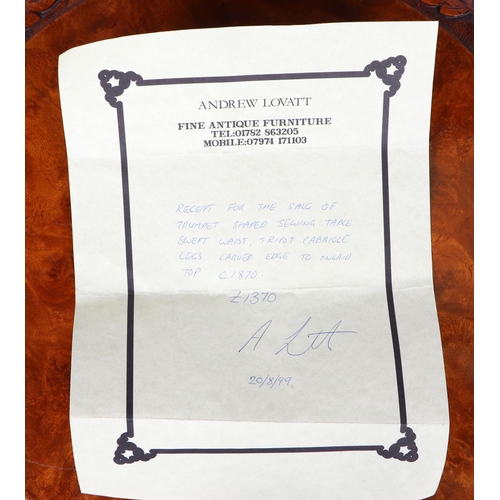 ANDREW LOVATT
FINE ANTIQUE FURNITURE
TEL:01782 863205
MOBILE:07974 171103
RECEIPT FOR THE SALE OF
TRUMPET SHAPED SEWING TABLE
SWEPT WAIST, TRIPOT CABRIOLE
LEGS CARVED EDGE TO INLAID
TOP C1870.
£1370
A
20/8/99